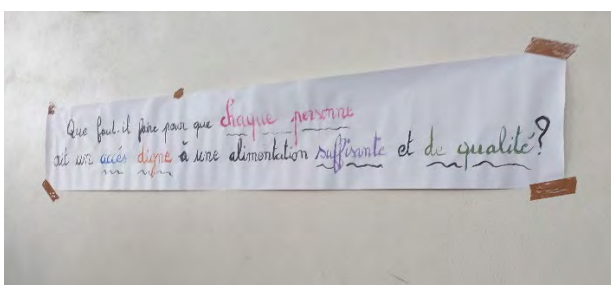 Que faut-il faire pour que chaque personne
ait un accès digne à une alimentation suffisante et de qualité?